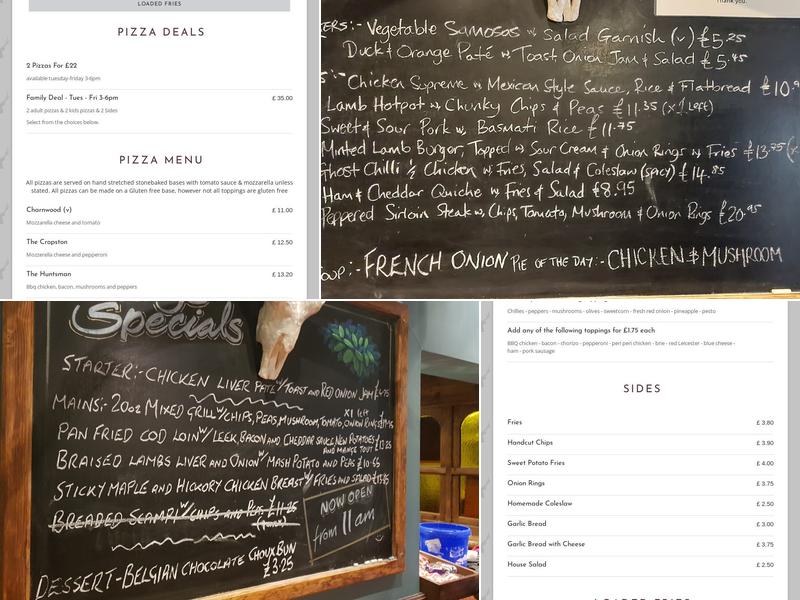 LOADED FRIES
PIZZA DEALS
2 Pizzas For £22
available tuesday-friday 3-6pm
Family Deal - Tues - Fri 3-6pm £ 35.00
2 adult pizzas & 2 kids pizzas & 2 Sides
Select from the choices below.
PIZZA MENU
All pizzas are served on hand stretched stonebaked bases with tomato sauce & mozzarella unless
stated. All pizzas can be made on a Gluten free base, however not all toppings are gluten free
Charnwood (v) £ 11.00
Mozzarella cheese and tomato
The Cropston £ 12.50
Mozzerella cheese and pepperoni
The Huntsman £ 13.20
Bbq chicken, bacon, mushrooms and peppers
Thank you.
ERS:- Vegetable Samosas w Salad Garnish (v) £5.25
Duck & Orange Paté w Toast Onion Jam & Salad £5.45
S:- Chicken Supreme w Mexican Style Sauce, Rice & Flatbread £10.9
Lamb Hotpot w Chunky Chips & Peas £11.35 (x1 Left)
Sweet & Sour Pork w, Basmati Rice £11.75
Minted Lamb Burger, Topped w Sour Cream & Onion Rings w Fries £13.75 (x
Ghost Chilli ½ Chicken w Fries, Salad & Coleslaw (spicy) £14.85
Ham & Cheddar Quiche w Fries & Salad £8.95
Peppered Sirloin Steak w, Chips, Tomato, Mushroom & Onion Rings £20.95
OUP:- FRENCH ONION PIE OF THE DAY:- CHICKEN & MUSHROOM
Specials
STARTER:- CHICKEN LIVER PATE w/ TOAST AND RED ONION JAM £4.75
X1 left
MAINS:- 20oz MIXED GRILL w/ CHIPS, PEAS, MUSHROOM, TOMATO, ONION RINGS
PAN FRIED COD LOIN w/ LEEK, BACON AND CHEDDAR SAUCE, NEW POTATOES
AND MANGE TOUT £13.25
BRAISED LAMBS LIVER AND ONION w/ MASH POTATO AND PEAS £10.45
STICKY MAPLE AND HICKORY CHICKEN BREAST w/ FRIES AND SALAD
BREADED SCAMPI w/ CHIPS AND PEAS £11.25
NOW OPEN
from 11am
DESSERT - BELGIAN CHOCOLATE CHOUX BUN
£3.25
Chillies - peppers - mushrooms - olives - sweetcorn - fresh red onion - pineapple - pesto
Add any of the following toppings for £1.75 each
BBQ chicken - bacon - chorizo - pepperoni - peri peri chicken - brie - red Leicester - blue cheese -
ham - pork sausage
SIDES
Fries £ 3.80
Handcut Chips £ 3.90
Sweet Potato Fries £ 4.00
Onion Rings £ 3.75
Homemade Coleslaw £ 2.50
Garlic Bread £ 3.00
Garlic Bread with Cheese £ 3.75
House Salad £ 2.50